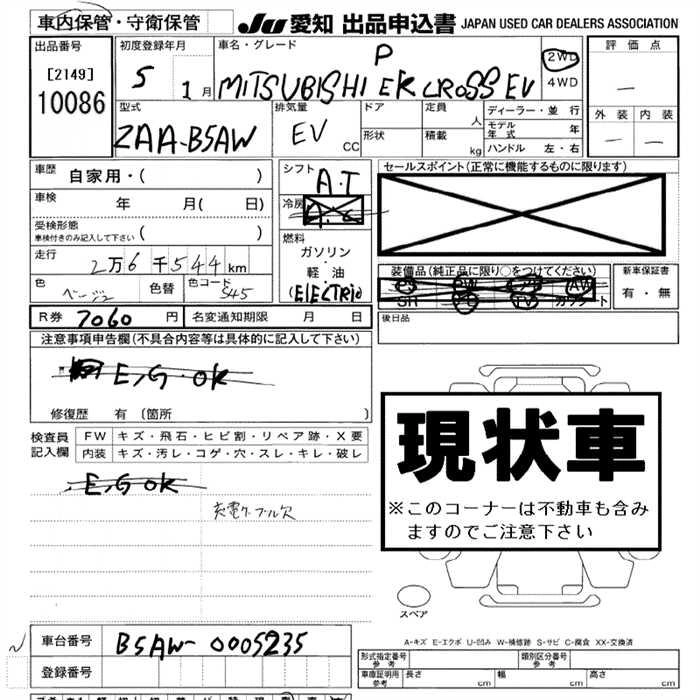 車内保管・守衛保管 JU 愛知 出品申込書 JAPAN USED CAR DEALERS ASSOCIATION
出品番号 初度登録年月 車名・グレード P 2WD 4WD 評価点
[2149] 10086 5 1月 MITSUBISHI EK CROSS EV —
型式 ZAA-B5AW 排気量 EV CC ドア 形状 定員 人 積載 kg ディーラー・並行 モデル年式 年 ハンドル 左・右 外装 内装 — —
車歴 自家用・( ) シフト A.T セールスポイント(正常に機能するものに限ります)
車検 年 月( 日) 冷房 A.C
受検形態 車検付きのみ記入して下さい ( ) 燃料
走行 2万6千544km ガソリン・軽油 (ELECTRIC) 装備品(純正品に限り○をつけてください) 新車保証書
色 ベージュ 色替 色コード S45 SR PS PW AW SH TV カワシート 有・無
R券 7060円 名変通知期限 月 日 後日品
注意事項申告欄(不具合内容等は具体的に記入して下さい)
E,G・OK
修復歴 有 (箇所 )
現状車
※このコーナーは不動車も含みますのでご注意下さい
検査員記入欄 FW キズ・飛石・ヒビ割・リペア跡・X要
内装 キズ・汚レ・コゲ・穴・スレ・キレ・破レ
E,G OK
充電ケーブル欠
スペア
A-キズ E-エクボ U-凹み W-補修跡 S-サビ C-腐食 XX-交換済
車台番号 B5AW-0005235 形式指定番号 参考 類別区分番号 参考
登録番号 車庫証明用 参考 長さ cm 幅 cm 高さ cm